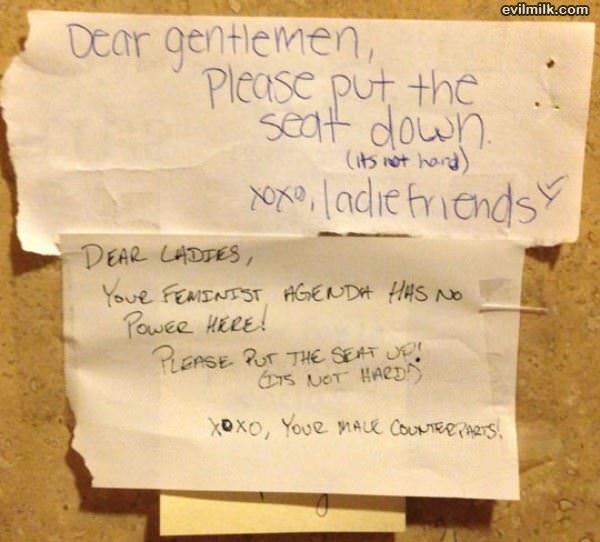 evilmilk.com
Dear gentlemen,
Please put the
seat down.
(its not hard)
xoxo, ladie friends
DEAR LADIES,
YOUR FEMINIST AGENDA HAS NO
POWER HERE!
PLEASE PUT THE SEAT UP!
(ITS NOT HARD!)
XOXO, YOUR MALE COUNTERPARTS!